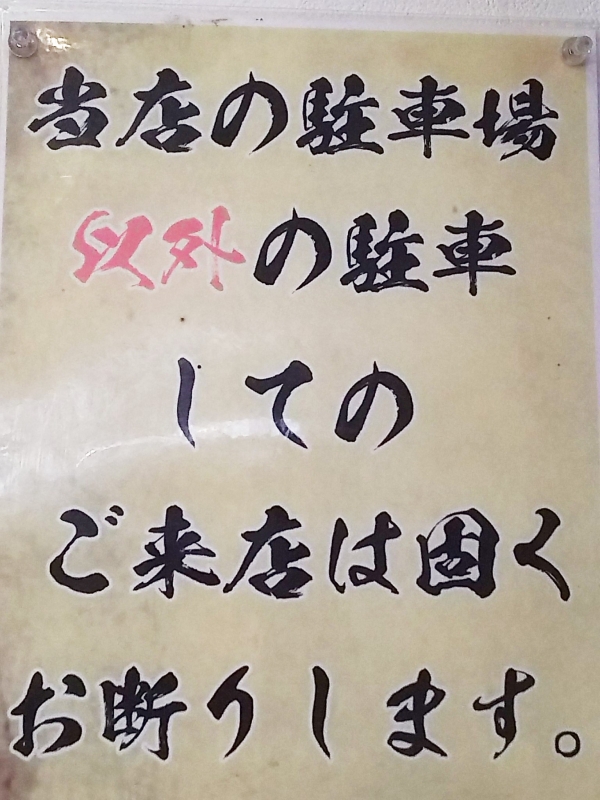 当店の駐車場
以外の駐車
しての
ご来店は固く
お断りします。